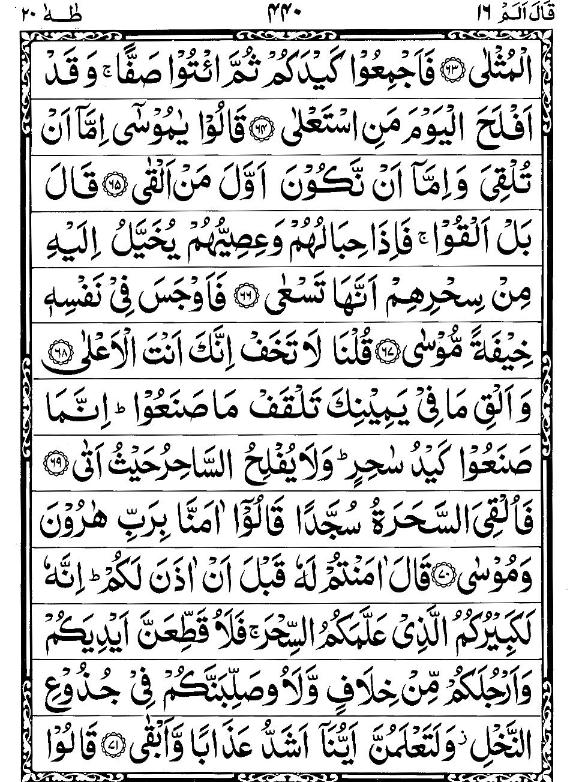 قَالَ اَلَمْ ١٦ ٤٤٠ طٰهٰ ٢٠
الْمُثْلٰى ﴿٦٣﴾ فَاَجْمِعُوْا كَيْدَكُمْ ثُمَّ ائْتُوْا صَفًّا ۚ وَقَدْ
اَفْلَحَ الْيَوْمَ مَنِ اسْتَعْلٰى ﴿٦٤﴾ قَالُوْا يٰمُوْسٰٓى اِمَّاۤ اَنْ
تُلْقِيَ وَاِمَّاۤ اَنْ نَّكُوْنَ اَوَّلَ مَنْ اَلْقٰى ﴿٦٥﴾ قَالَ
بَلْ اَلْقُوْا ۚ فَاِذَا حِبَالُهُمْ وَعِصِيُّهُمْ يُخَيَّلُ اِلَيْهِ
مِنْ سِحْرِهِمْ اَنَّهَا تَسْعٰى ﴿٦٦﴾ فَاَوْجَسَ فِيْ نَفْسِهٖ
خِيْفَةً مُّوْسٰى ﴿٦٧﴾ قُلْنَا لَا تَخَفْ اِنَّكَ اَنْتَ الْاَعْلٰى ﴿٦٨﴾
وَاَلْقِ مَا فِيْ يَمِيْنِكَ تَلْقَفْ مَا صَنَعُوْا ؕ اِنَّمَا
صَنَعُوْا كَيْدُ سٰحِرٍ ؕ وَلَا يُفْلِحُ السَّاحِرُ حَيْثُ اَتٰى ﴿٦٩﴾
فَاُلْقِيَ السَّحَرَةُ سُجَّدًا قَالُوْۤا اٰمَنَّا بِرَبِّ هٰرُوْنَ
وَمُوْسٰى ﴿٧٠﴾ قَالَ اٰمَنْتُمْ لَهٗ قَبْلَ اَنْ اٰذَنَ لَكُمْ ؕ اِنَّهٗ
لَكَبِيْرُكُمُ الَّذِيْ عَلَّمَكُمُ السِّحْرَ ۚ فَلَاُقَطِّعَنَّ اَيْدِيَكُمْ
وَاَرْجُلَكُمْ مِّنْ خِلَافٍ وَّلَاُوصَلِّبَنَّكُمْ فِيْ جُذُوْعِ
النَّخْلِ ۫ وَلَتَعْلَمُنَّ اَيُّنَاۤ اَشَدُّ عَذَابًا وَّاَبْقٰى ﴿٧١﴾ قَالُوْا